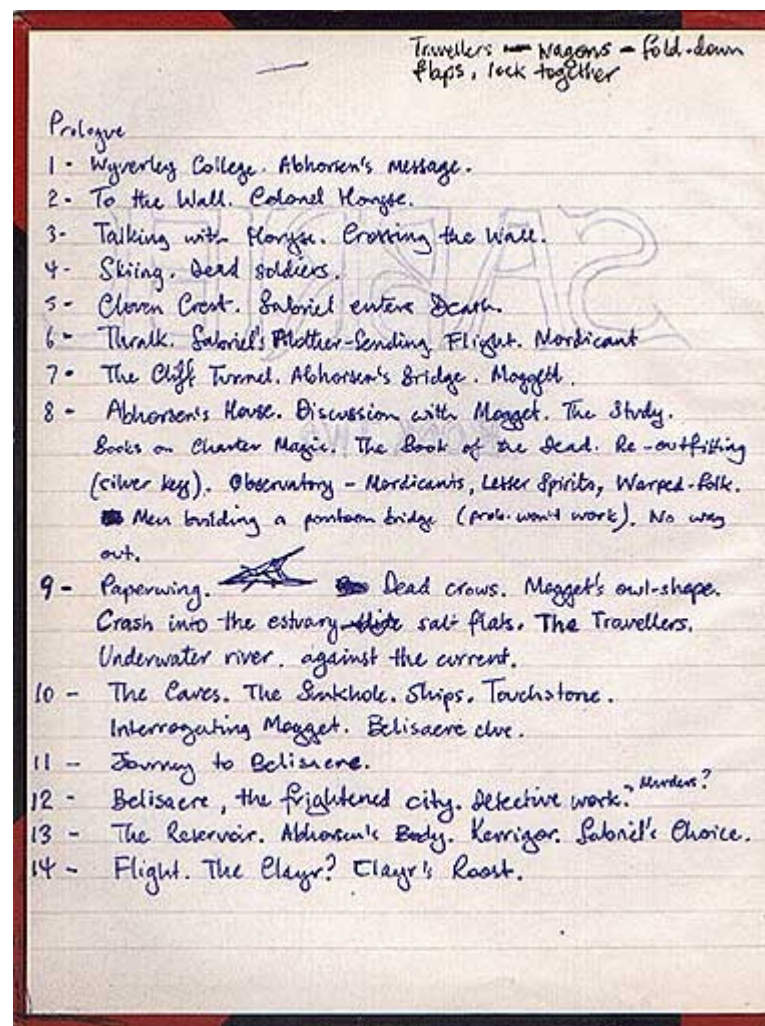 Travellers — wagons – fold-down
flaps, lock together
Prologue
1 - Wyverley College. Abhorsen's message.
2 - To the Wall. Colonel Horyse.
3 - Talking with Horyse. Crossing the Wall.
4 - Skiing. Dead soldiers.
5 - Cloven Crest. Sabriel enters Death.
6 - Thralk. Sabriel's Mother-Sending. Flight. Mordicant
7 - The Cliff Tunnel. Abhorsen's Bridge. Moggett.
8 - Abhorsen's House. Discussion with Mogget. The Study.
Books on Charter Magic. The Book of the Dead. Re-outfitting
(silver key). Observatory – Mordicants, Lesser Spirits, Warped-folk.
Men building a pontoon bridge (prob. won't work). No way
out.
9 - Paperwing. Dead crows. Mogget's owl-shape.
Crash into the estuary salt flats. The Travellers.
Underwater river. against the current.
10 - The Caves. The Sinkhole. Ships. Touchstone.
Interrogating Mogget. Belisaere clue.
11 - Journey to Belisaere.
12 - Belisaere, the frightened city. Detective work. Murders?
13 - The Reservoir. Abhorsen's Body. Kerrigor. Sabriel's Choice.
14 - Flight. The Clayr? Clayr's Roost.
SABRIEL